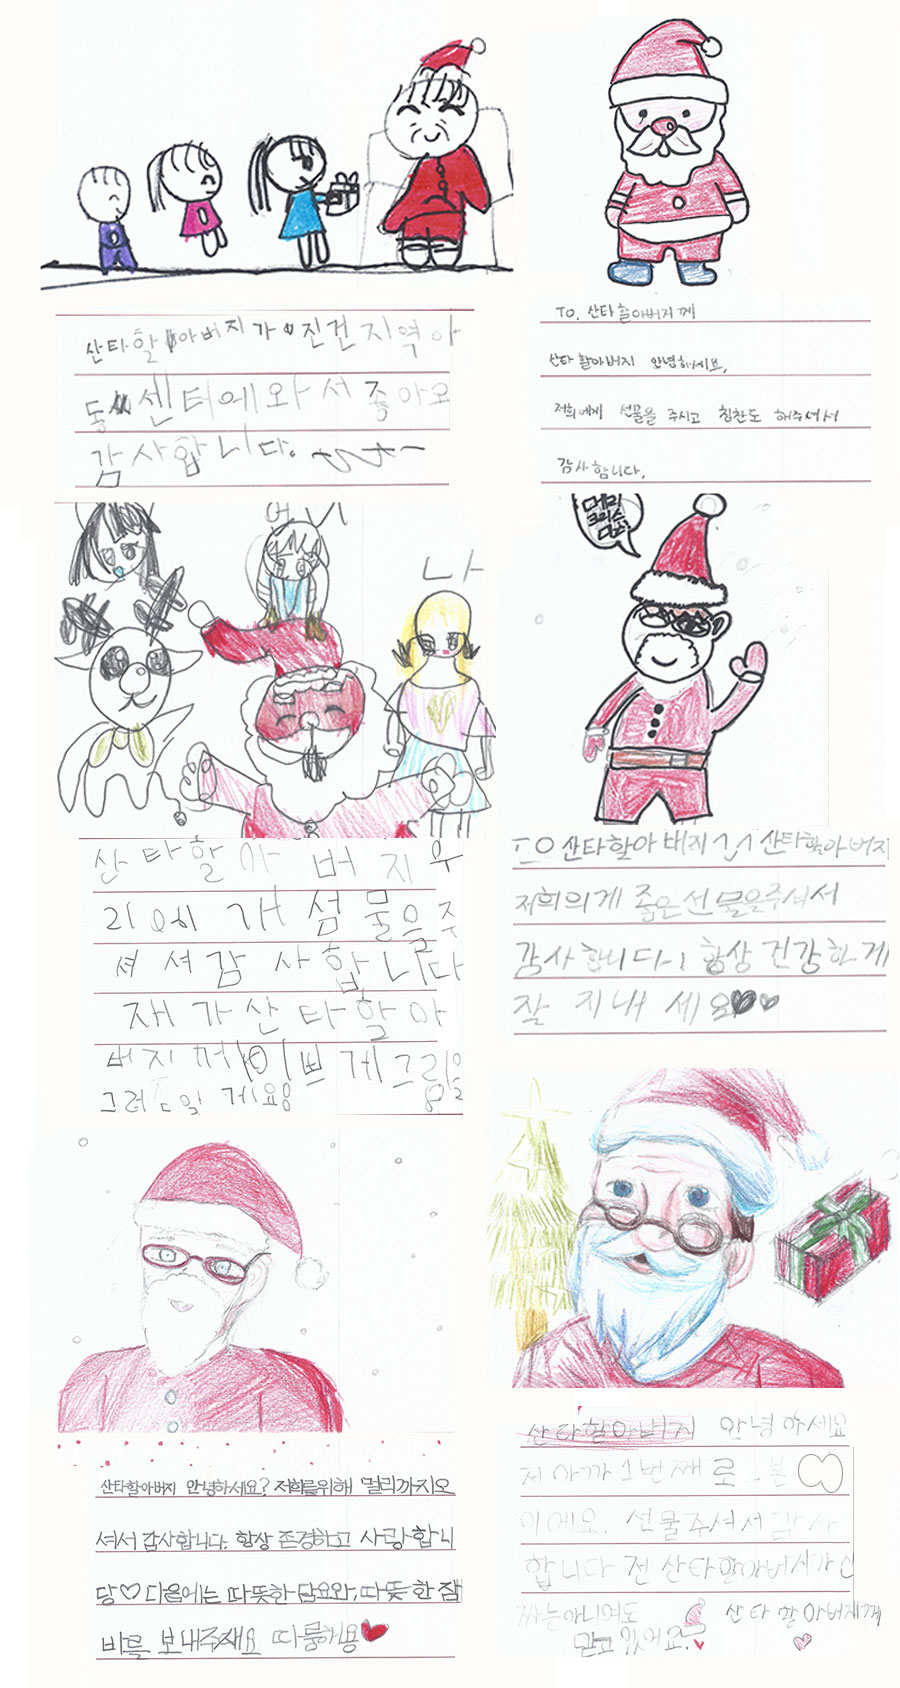 산타할아버지가 진건지역아
동센터에와서 좋아요
감사합니다.
TO. 산타할아버지께
산타할아버지 안녕하세요,
저희에게 선물을 주시고 칭찬도 해주셔서
감사합니다.
언니
나
메리
크리스
마스
산타할아버지우
리에개섬물을주
셔셔감사합니다
재가산타할아
버지께이쁘게그림을
그려줄게요
TO 산타할아버지 산타할아버지
저희의게 좋은선물을주셔서
감사합니다 항상 건강하게
잘 지내세요
산타할아버지 안녕하세요? 저희를위해 멀리까지오
셔서 감사합니다. 항상 존경하고 사랑합니
당♡ 다음에는 따뜻한 담요와, 따뜻한 잠
바를 보내주세요
산타할아버지 안녕하세요
저 아까 1번째로 본
이에요. 선물주셔서감사
합니다 전 산타할아버지가진
짜는아니여도 산타할아버지께
믿고 있어요.